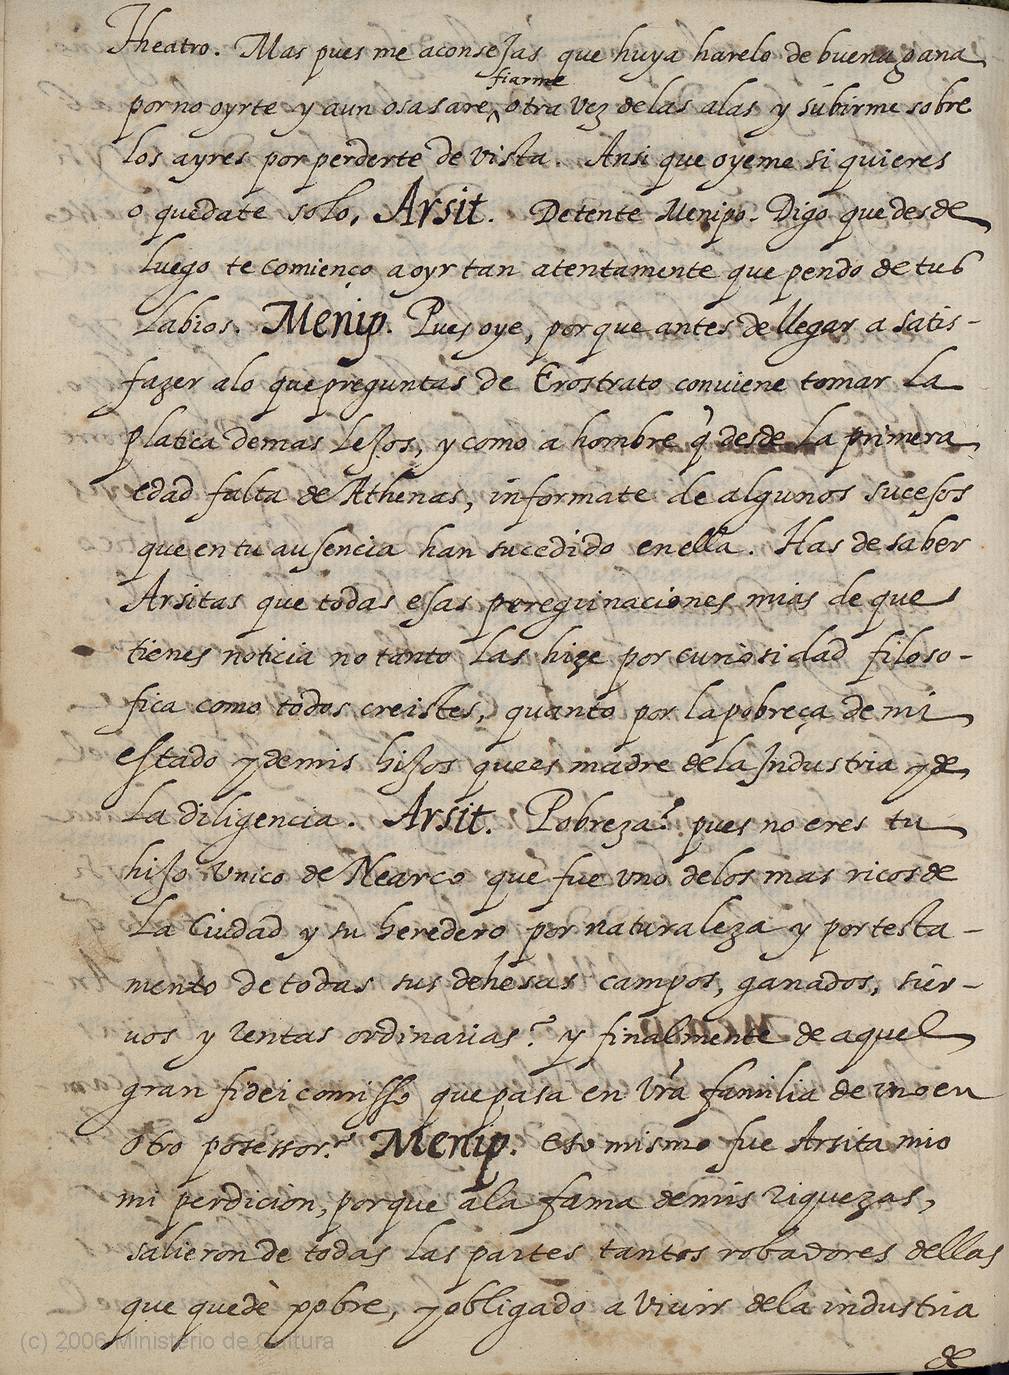 Theatro. Mas pues me aconsejas que huya harelo de buena gana
fiarme
por no oyrte y aun osasare ^ otra vez de las alas y subirme sobre
los ayres por perderte de vista. Ansi que oyeme si quieres
o quedate solo, Arsit. Detente Menipo. Digo que desde
luego te comienço a oyr tan atentamente que pendo de tus
labios. Menip. Pues oye, porque antes de llegar a satis-
fazer alo que preguntas de Erostrato conviene tomar la
platica demas lejos, y como a hombre q̃ desde la primera
edad falta de Athenas, informate de algunos sucesos
que en tu ausencia han sucedido en ella. Has de saber
Arsitas que todas esas peregrinaciones mias de que
tienes noticia no tanto las hize por curiosidad filoso-
fica como todos creistes, quanto por la pobreça de mi
estado y de mis hijos que es madre de la Industria y de
la diligencia. Arsit. Pobreza? pues no eres tu
hijo unico de Nearco que fue uno de los mas ricos de
la Ciudad y su heredero por naturaleza y por testa-
mento de todas sus dehesas campos, ganados, sier-
vos y rentas ordinarias? y finalmente de aquel
gran fideicomisso que pasa en vr̃a familia de uno en
otro posessor? Menip. Eso mismo fue Arsita mio
mi perdicion, porque a la fama de mis riquezas,
salieron de todas las partes tantos robadores dellas
que quedè pobre, y obligado a vivir de la industria
de
(c) 2006 Ministerio de Cultura